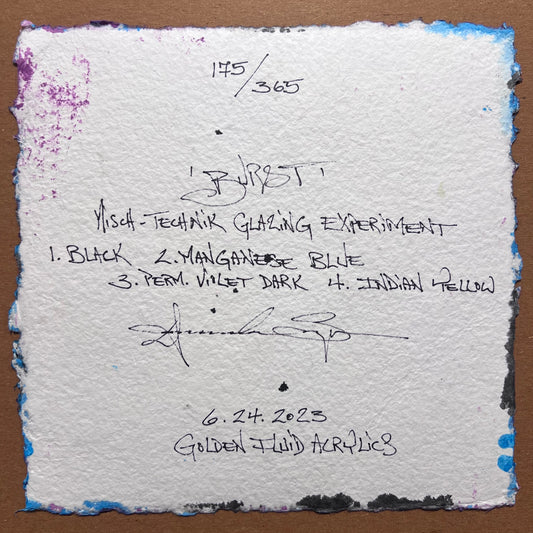 175/365
'BURST'
MISCH-TECHNIK GLAZING EXPERIMENT
1. BLACK 2. MANGANESE BLUE
3. PERM. VIOLET DARK 4. INDIAN YELLOW
6.24.2023
GOLDEN FLUID ACRYLICS